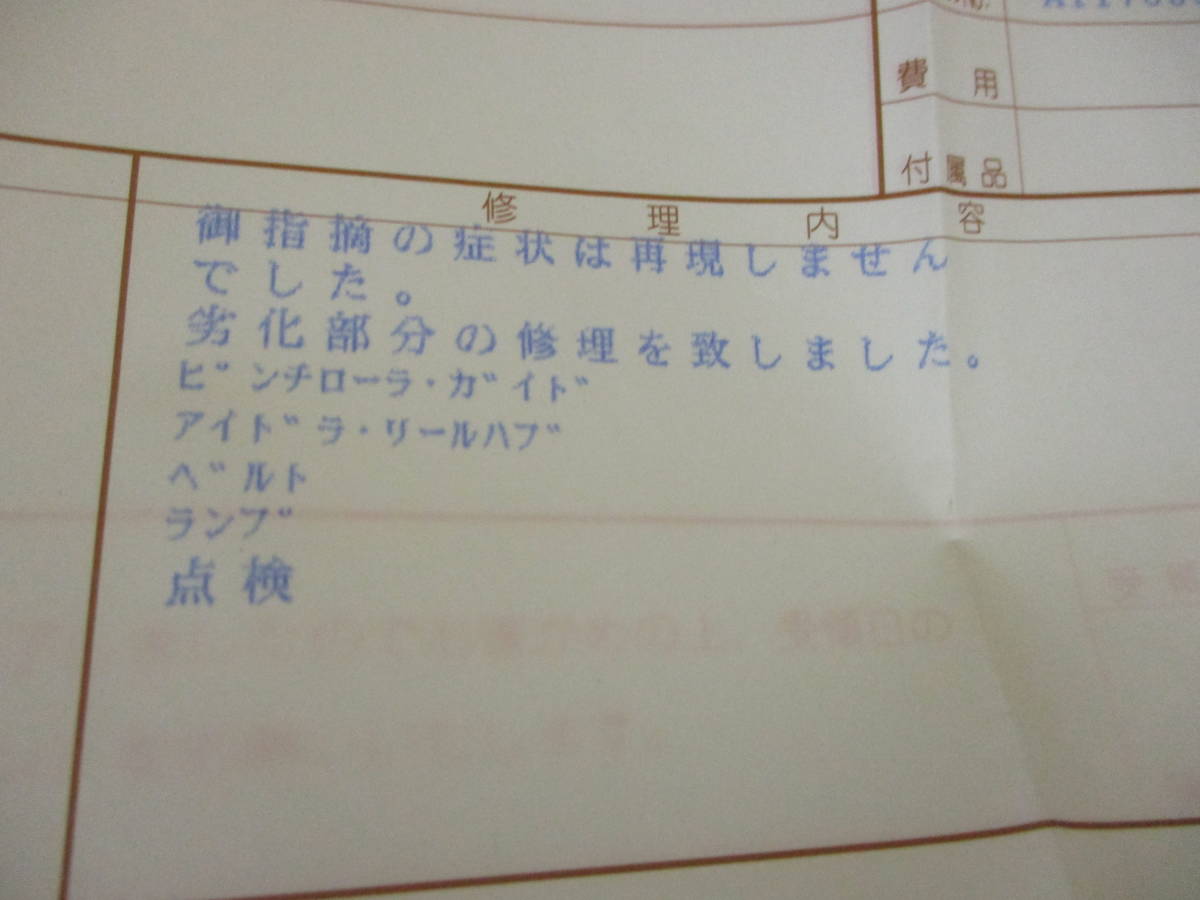 費用
付属品
修理内容
御指摘の症状は再現しません
でした。
劣化部分の修理を致しました。
ピンチローラ・ガイド
アイドラ・リールハブ
ベルト
ランプ
点検